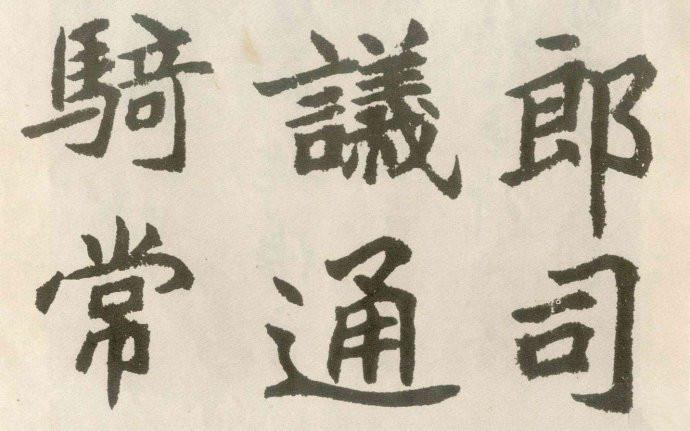 郎司
議通
騎常